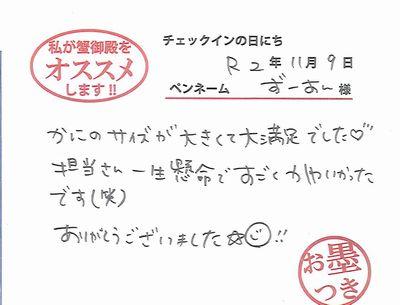 私が蟹御殿を
オススメ
します!!
チェックインの日にち
R2年11月9日
ペンネーム ずーあ〜様
かにのサイズが大きくて大満足でした♡
担当さん一生懸命ですごくかわいかった
です(笑)
ありがとうございました☆☺!!
お墨
つき